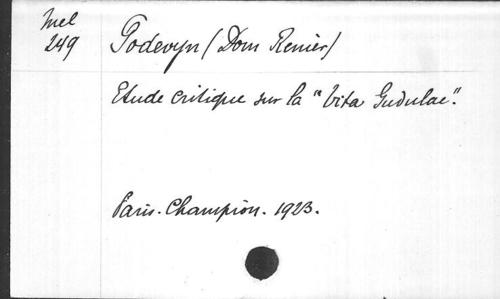 Mel
249
Podevyn (Dom Renier)
Etude critique sur la "Vita Gudulae".
Paris. Champion. 1923.